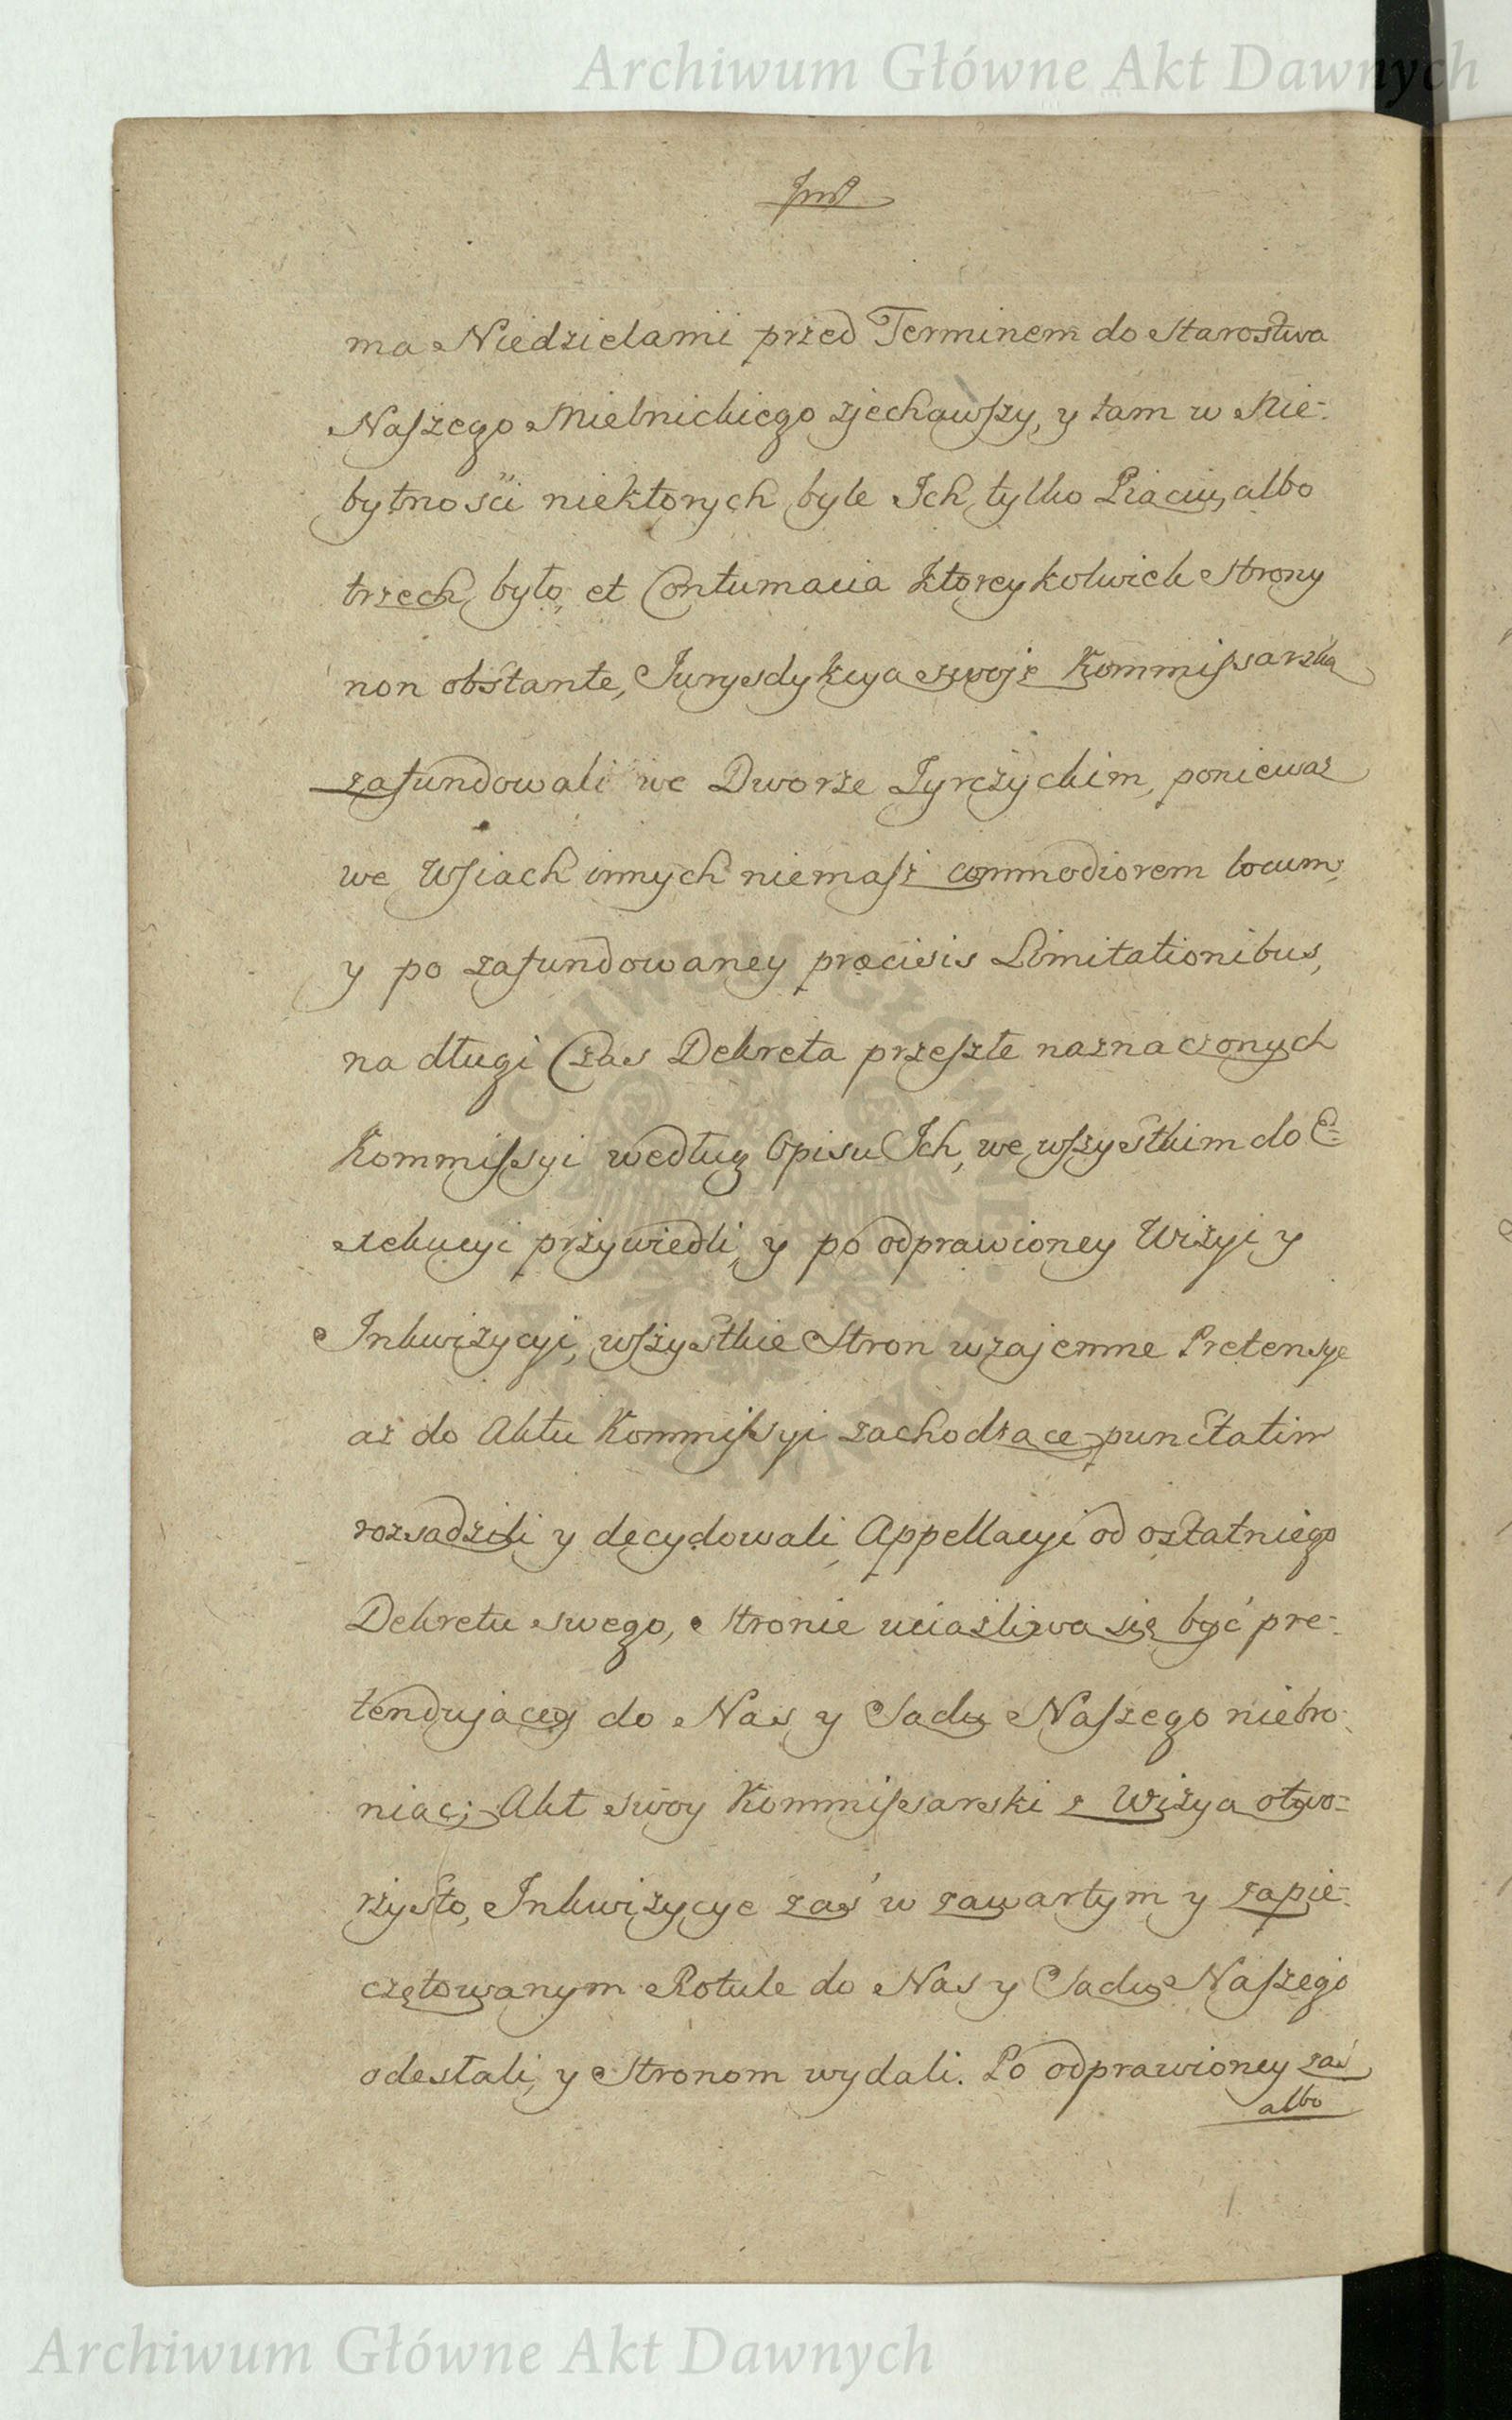 Archiwum Główne Akt Dawnych
ma Niedzielami przed Terminem do Starostwa
Naszego Mielnickiego zjechawszy, y tam w Nie-
bytności niektorych byle Ich tylko Piąciu, albo
trzech było, et Contumacia ktoreykolwiek strony
non obstante, Jurysdykcyą swoię Kommissarską
zafundowali we Dworze Tyrczyckim, ponieważ
we Wsiach innych niemasz commodiorem locum,
y po zafundowaney præcisis Limitationibus,
na długi Czas Dekreta przeszłe naznaczonych
Kommissyi według Opisu Ich, we wszystkim do E-
xekucyi przywiedli, y po odprawioney Wizyi y
Inkwizycyi, wszystkie Stron wzajemne Pretensye
aż do Aktu Kommissyi zachodzące punctatim
rozsądzili y decydowali, Appellacyi od ostatniego
Dekretu swego, Stronie uciążliwą się być pre-
tendującey do Nas y Sądu Naszego niebro-
niąc; Akt swoy Kommissarski z Wizyą otwo-
rzysto, Inkwizycye zaś w zawartym y zapie-
czętowanym Rotule do Nas y Sądu Naszego
odesłali, y Stronom wydali. Po odprawioney zaś
albo
ARCHIWUM GŁÓWNE AKT DAWNYCH
Archiwum Główne Akt Dawnych